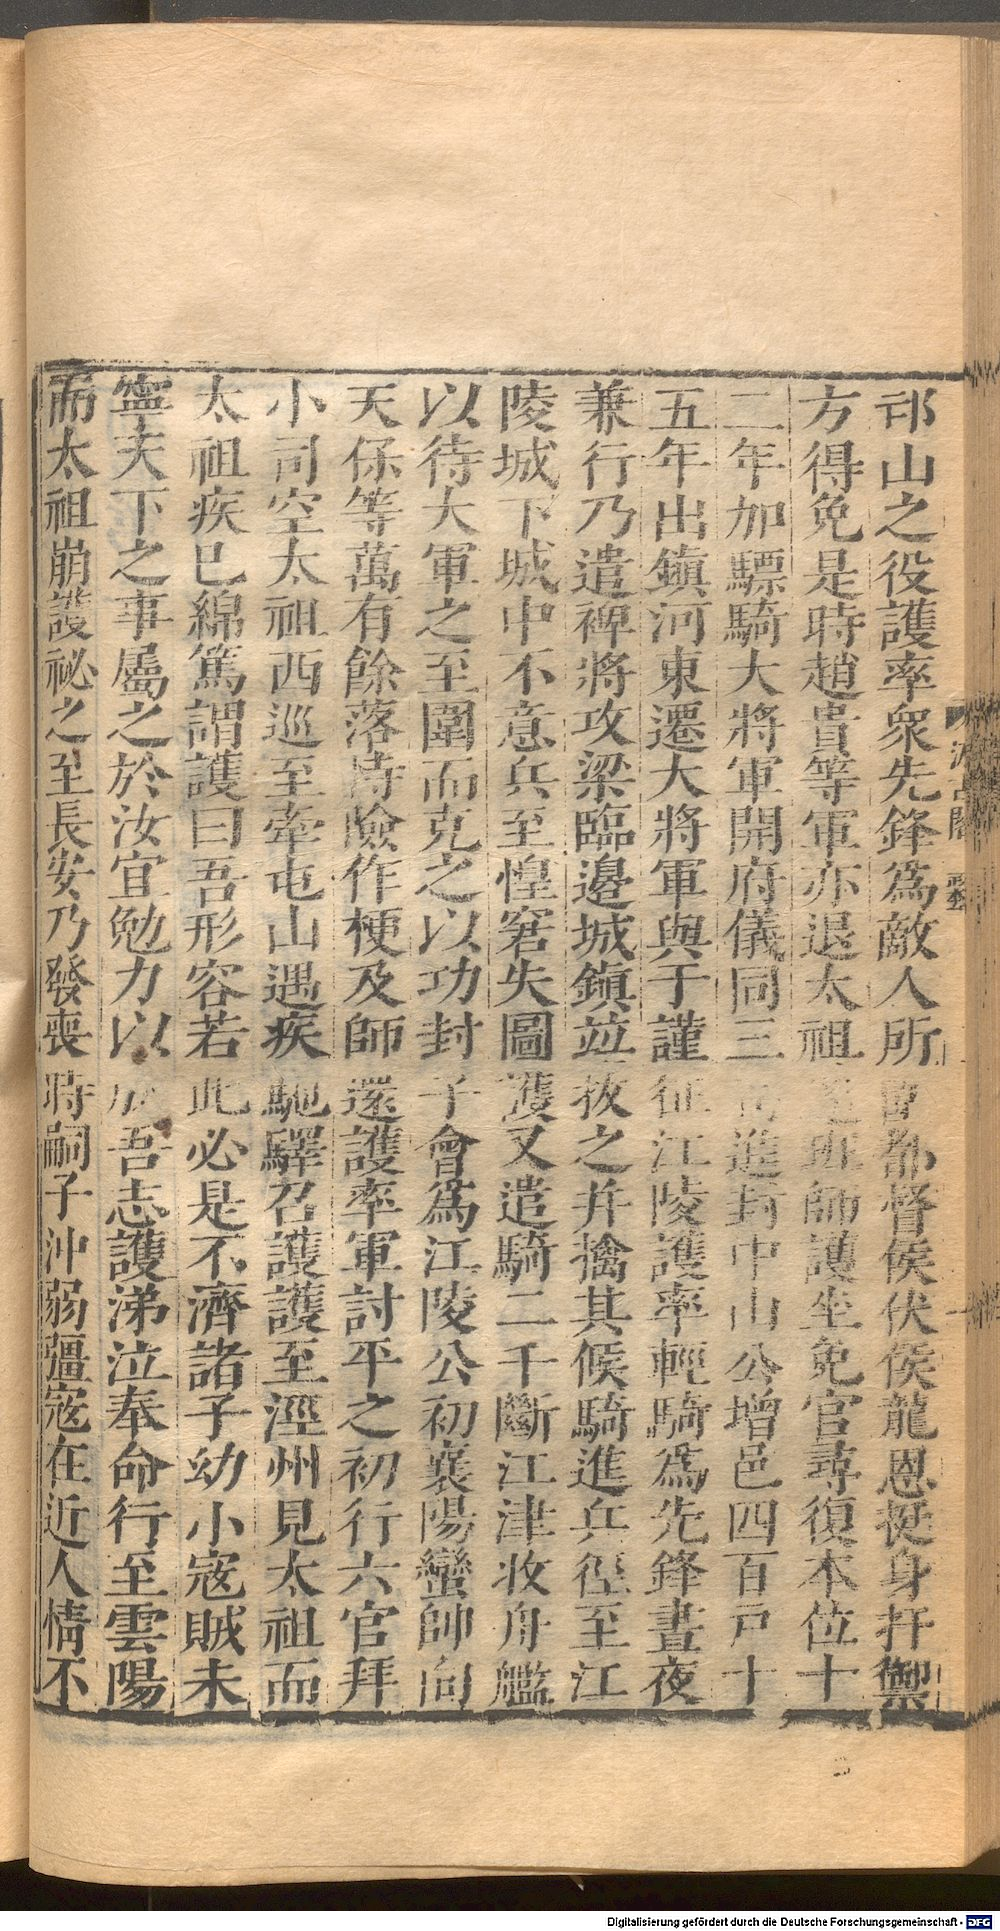 邙山之役護率衆先鋒爲敵人所圍都督侯伏侯龍恩挺身扞禦
方得免是時趙貴等軍亦退太祖遂班師護坐免官尋復本位十
二年加驃騎大將軍開府儀同三司進封中山公增邑四百戸十
五年出鎮河東遷大將軍與于謹征江陵護率輕騎爲先鋒晝夜
兼行乃遣裨將攻梁臨邊城鎮竝拔之并擒其候騎進兵徑至江
陵城下城中不意兵至惶窘失圖護又遣騎二千斷江津收舟艦
以待大軍之至圍而克之以功封子會爲江陵公初襄陽蠻帥向
天保等萬有餘落恃險作梗及師還護率軍討平之初行六官拜
小司空太祖西巡至牽屯山遇疾馳驛召護護至涇州見太祖而
太祖疾巳綿篤謂護曰吾形容若此必是不濟諸子幼小寇賊未
寧天下之事屬之於汝宜勉力以成吾志護涕泣奉命行至雲陽
而太祖崩護祕之至長安乃發喪時嗣子沖弱彊寇在近人情不
Digitalisierung gefördert durch die Deutsche Forschungsgemeinschaft - DFG